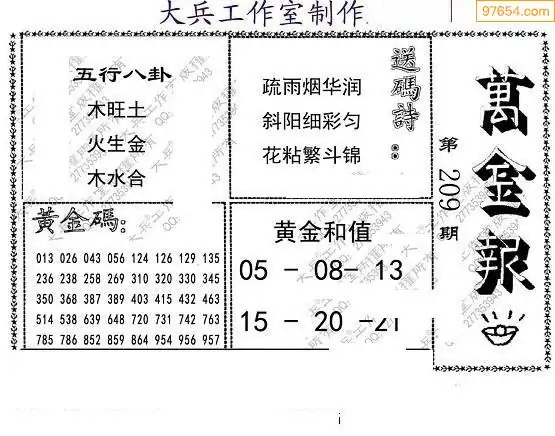 大兵工作室制作
97654.com
五行八卦
木旺土
火生金
木水合
疏雨烟华润
斜阳细彩匀
花粘繁斗锦
送碼詩：
第209期
萬金報
黃金碼：
013 026 043 056 124 126 129 135
236 238 258 269 310 320 330 345
350 368 387 389 403 415 432 463
514 538 639 648 720 731 742 763
785 786 852 859 864 954 956 957
黄金和值
05 - 08- 13
15 - 20 -21